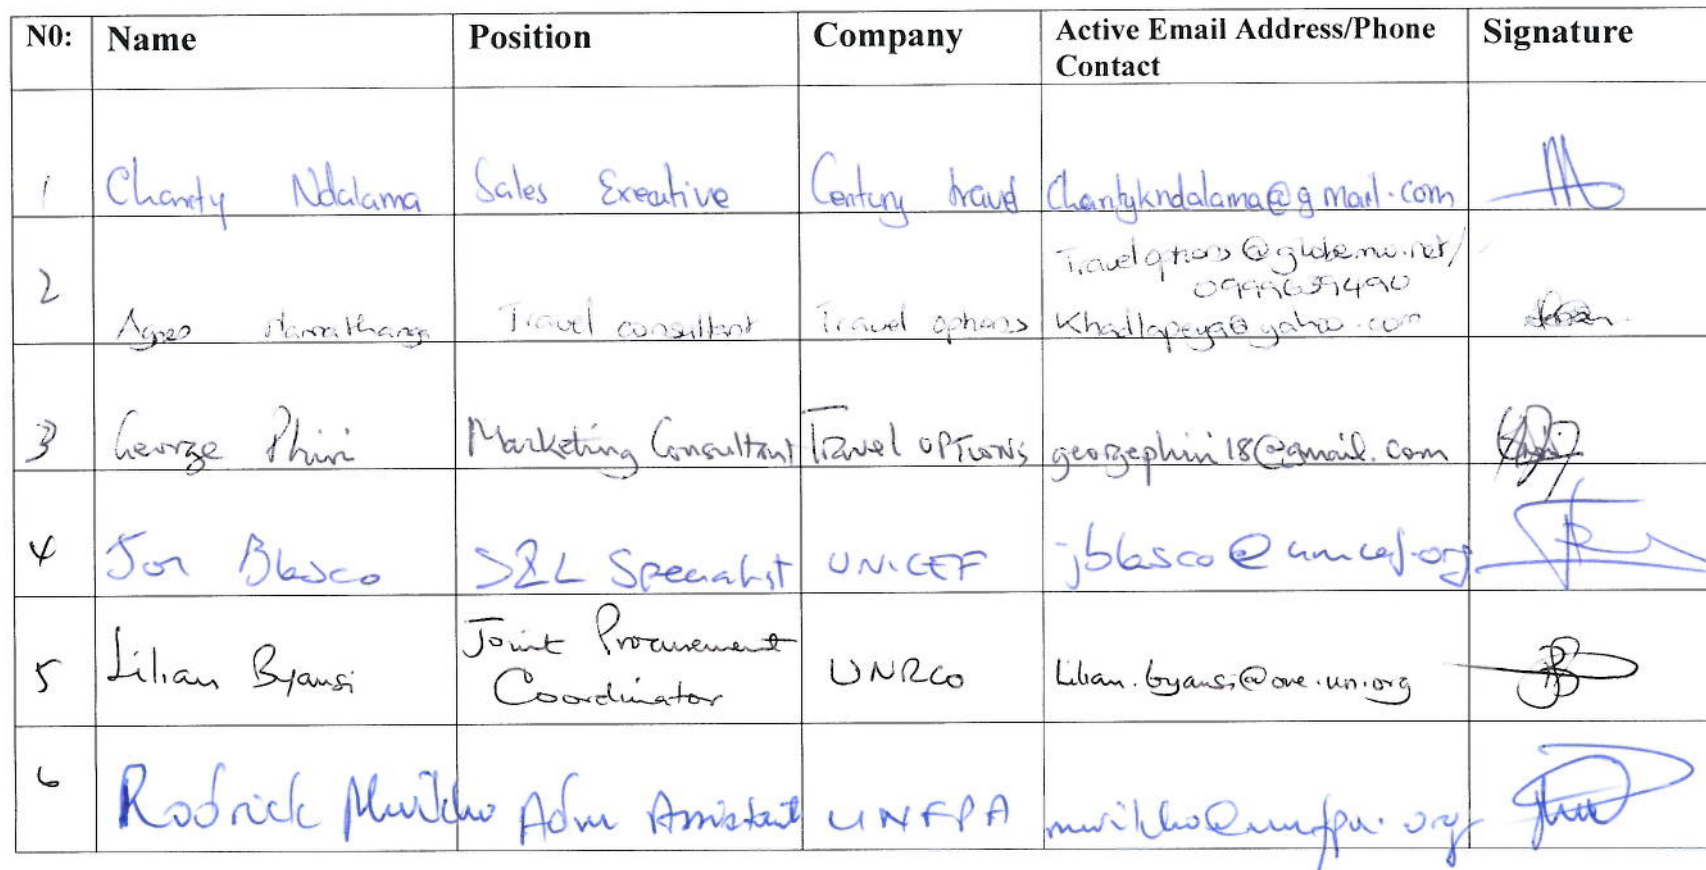 N0: Name Position Company Active Email Address/Phone Contact Signature
1 Charity Ndalama Sales Executive Century travel Charitykndalama@gmail.com
Traveloptions@globemw.net/
2 0999639490
Agnes Travel consultant Travel options @yahoo.com
3 George Phiri Marketing Consultant Travel OPTIONS georgephiri18@gmail.com
4 Jon Blasco S&L Specialist UNICEF jblasco@unicef.org
5 Lilian Byansi Joint Procurement Coordinator UNRCO Lilian.byansi@one.un.org
6 Rodrick Mwikho Adm Assistant UNFPA mwikho@unfpa.org